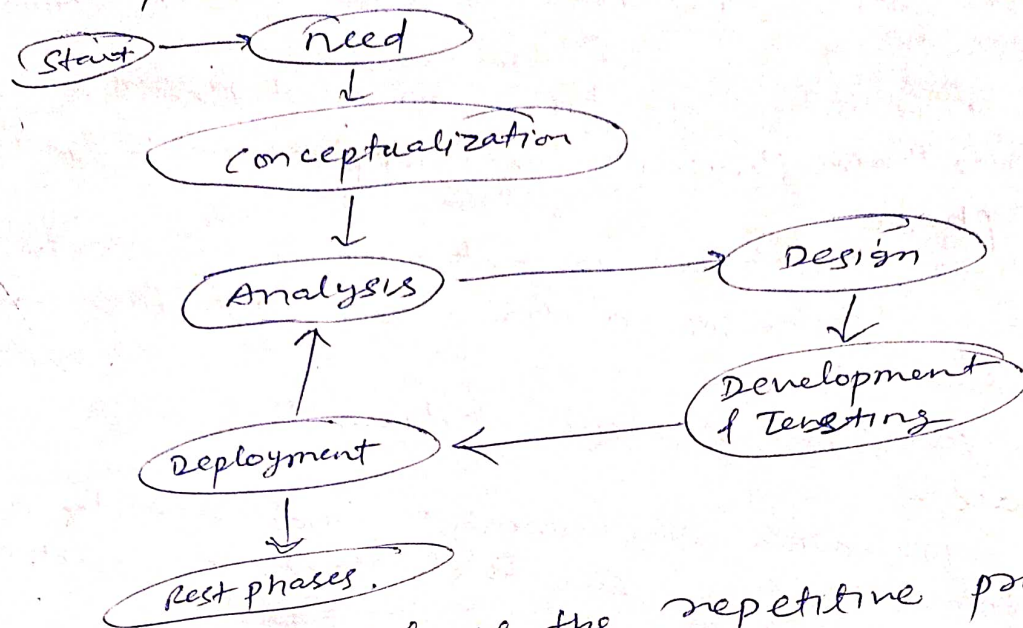 Start
need
conceptualization
Analysis
Design
Development
& Tensting
Deployment
Rest phases.
the repetitive